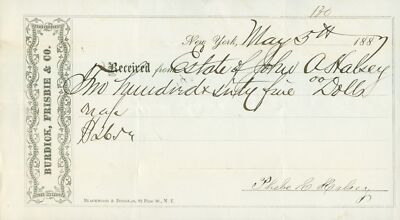 BURDICK, FRISBIE & CO.
New York, May 5th 1887
Received from Estate of John O Halsey
Two hundred & sixty five 00 Dolls
Phebe C Halsey
BLACKWOOD & DOUGLAS, 82 PINE ST., N. Y.